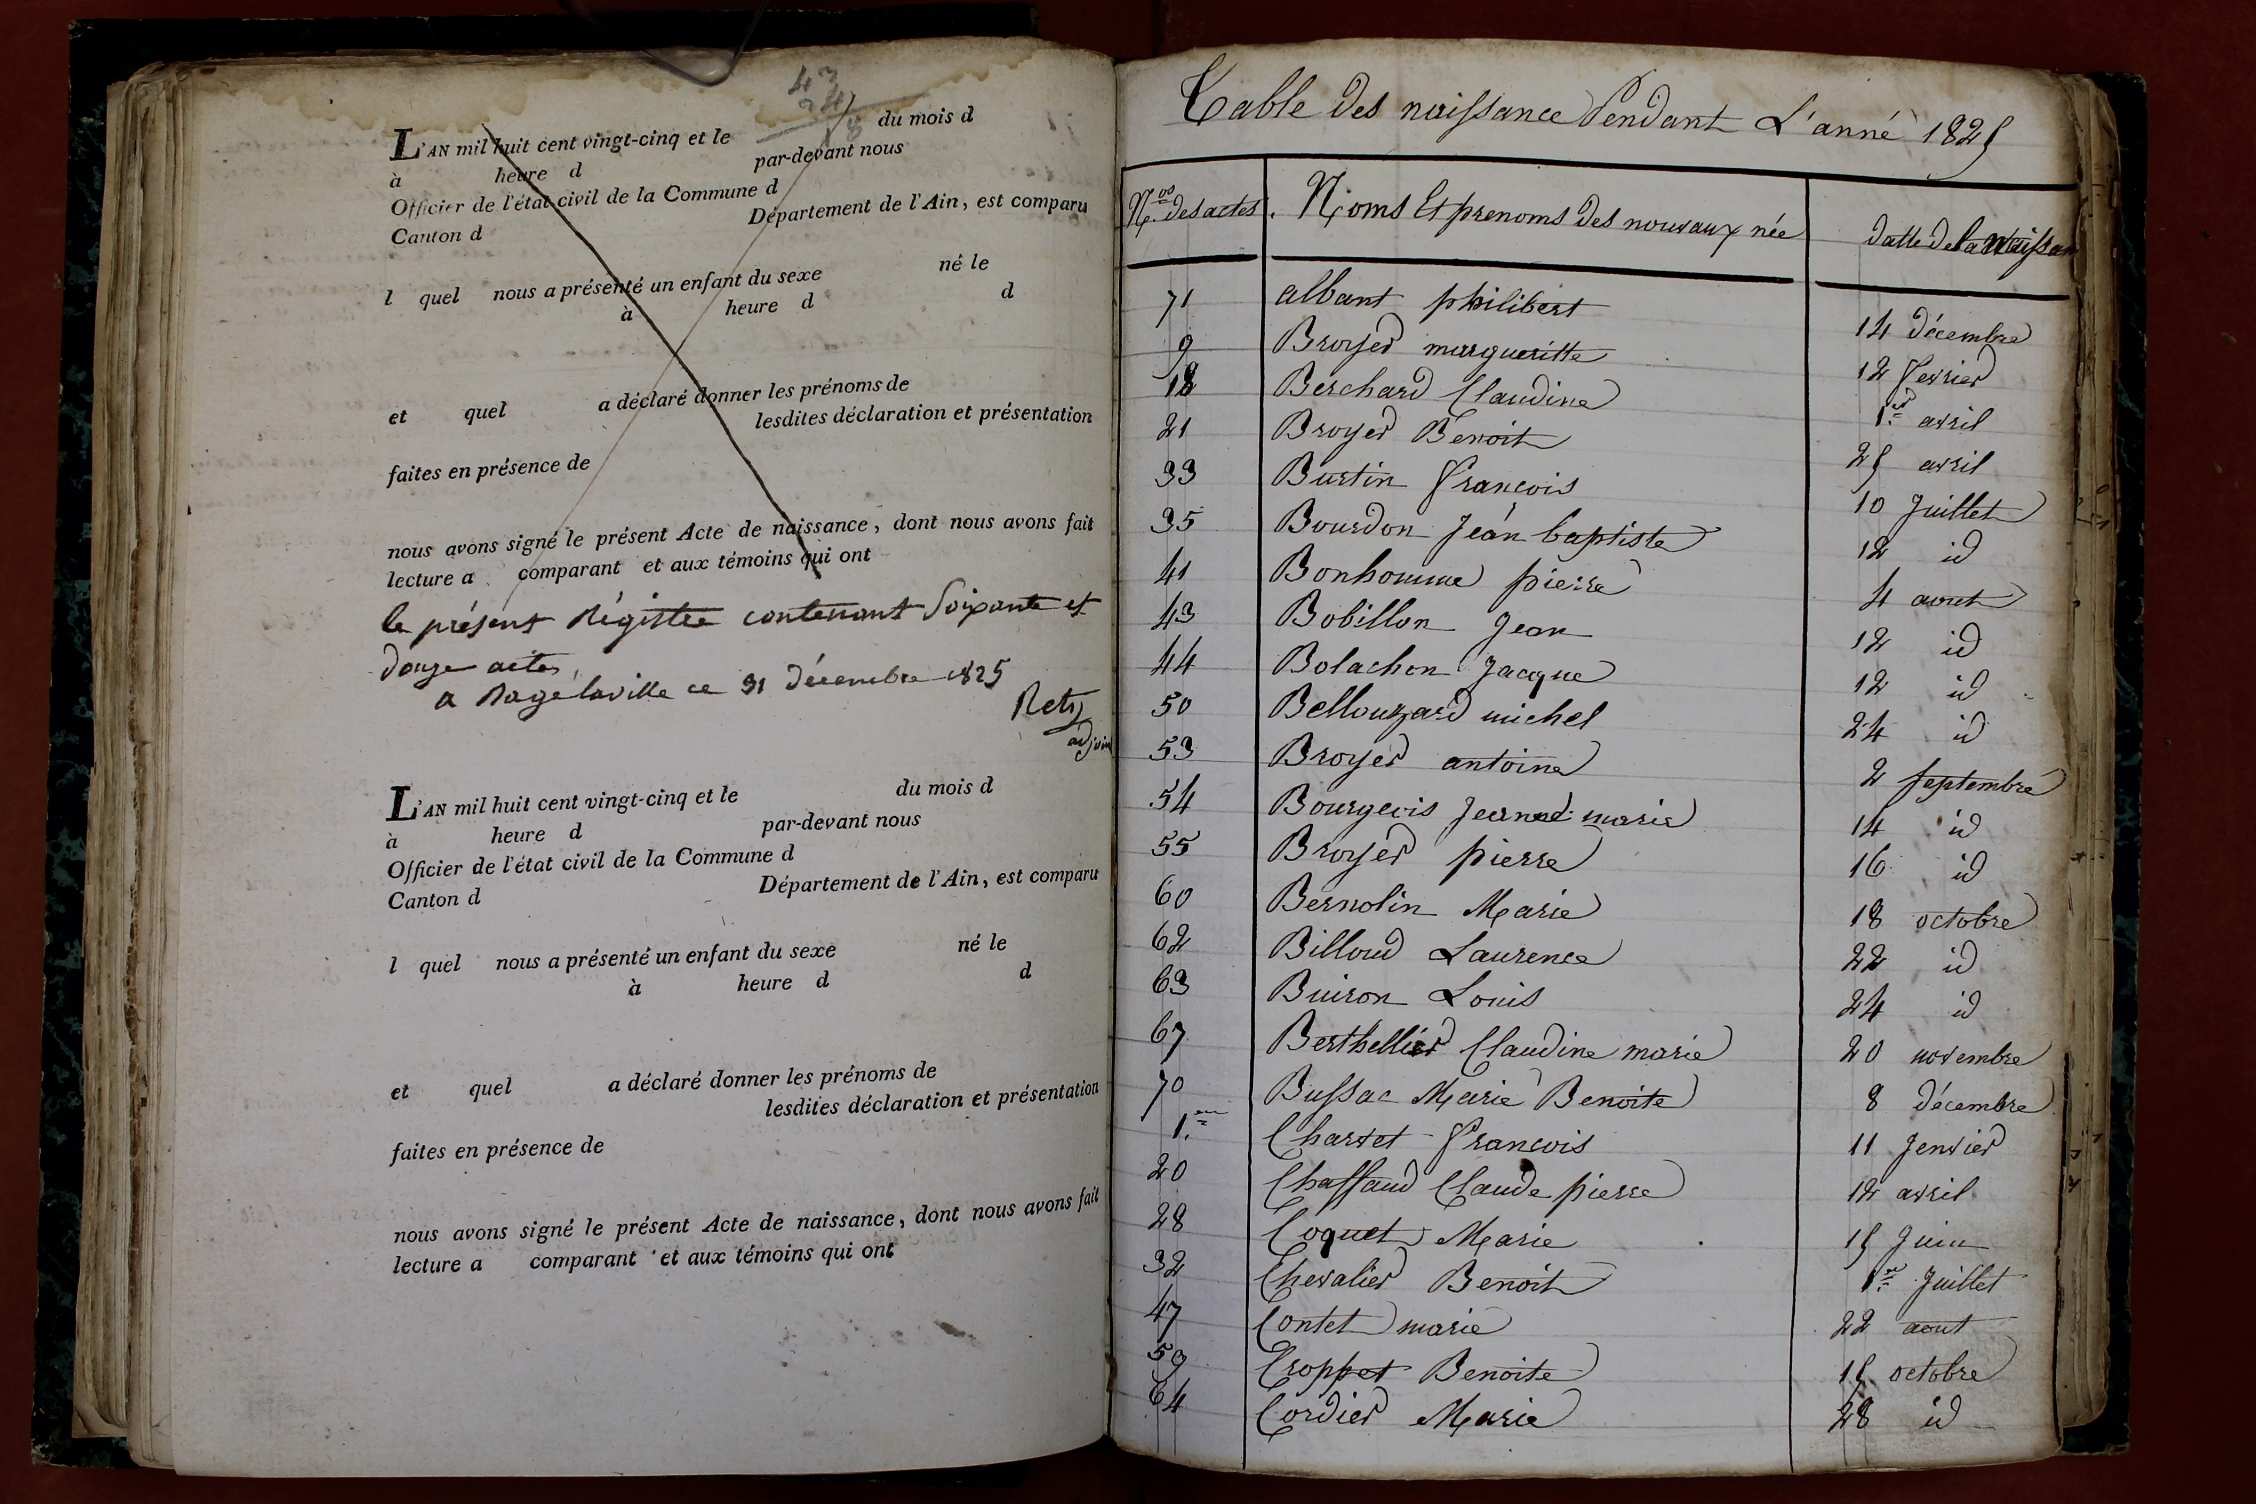 43
24
18
L'AN mil huit cent vingt-cinq et le du mois d
à heure d par-devant nous
Officier de l'état civil de la Commune d
Canton d Département de l'Ain, est comparu
l quel nous a présenté un enfant du sexe né le
à heure d d
et quel a déclaré donner les prénoms de
lesdites déclaration et présentation
faites en présence de
nous avons signé le présent Acte de naissance, dont nous avons fait
lecture a comparant et aux témoins qui ont
le présent Régistre contenant Soixante et
douze actes
a Bagé laville ce 31 décembre 1825
Rety
adjoint
L'AN mil huit cent vingt-cinq et le du mois d
à heure d par-devant nous
Officier de l'état civil de la Commune d
Canton d Département de l'Ain, est comparu
l quel nous a présenté un enfant du sexe né le
à heure d d
et quel a déclaré donner les prénoms de
lesdites déclaration et présentation
faites en présence de
nous avons signé le présent Acte de naissance, dont nous avons fait
lecture a comparant et aux témoins qui ont
Table des naissance Pendant L'anné 1825
Nos des actes. Noms Et prenoms des nouvaux née datte de la Naissan
71 albant philibert 14 décembre
9 Broyer margueritte 12 fevrier
18 Berchard Claudine 1er avril
21 Broyer Benoit 25 avril
33 Burtin francois 10 Juillet
35 Bourdon Jean baptiste 12 id
41 Bonhomme pierre 4 aout
43 Bobillon Jean 12 id
44 Bolachon Jacque 12 id
50 Bellouzard michel 24 id
53 Broyer antoine 2 septembre
54 Bourgeois Jeanne marie 14 id
55 Broyer pierre 16 id
60 Bernolin Marie 18 octobre
62 Billoud Laurence 22 id
63 Buiron Louis 24 id
67 Berthellier Claudine marie 20 novembre
70 Bussac Marie Benoite 8 décembre
1.er Charvet francois 11 Jenvier
20 Chaffaud Claude pierre 12 avril
28 Coquet Marie 15 Juin
32 Chevalier Benoit 1er Juillet
47 Contet marie 22 aout
59 Croppet Benoite 15 octobre
64 Cordier Marie 28 id